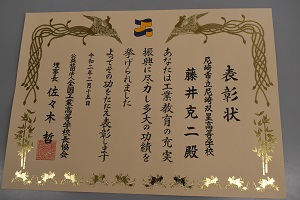 表彰状
尼崎市立尼崎双星高等学校
藤井克二殿
あなたは工業教育の充実
振興に尽力し多大の功績を
挙げられました
よってその功をたたえ表彰します
令和二年二月十五日
公益社団法人全国工業高等学校長協会
理事長 佐々木 哲